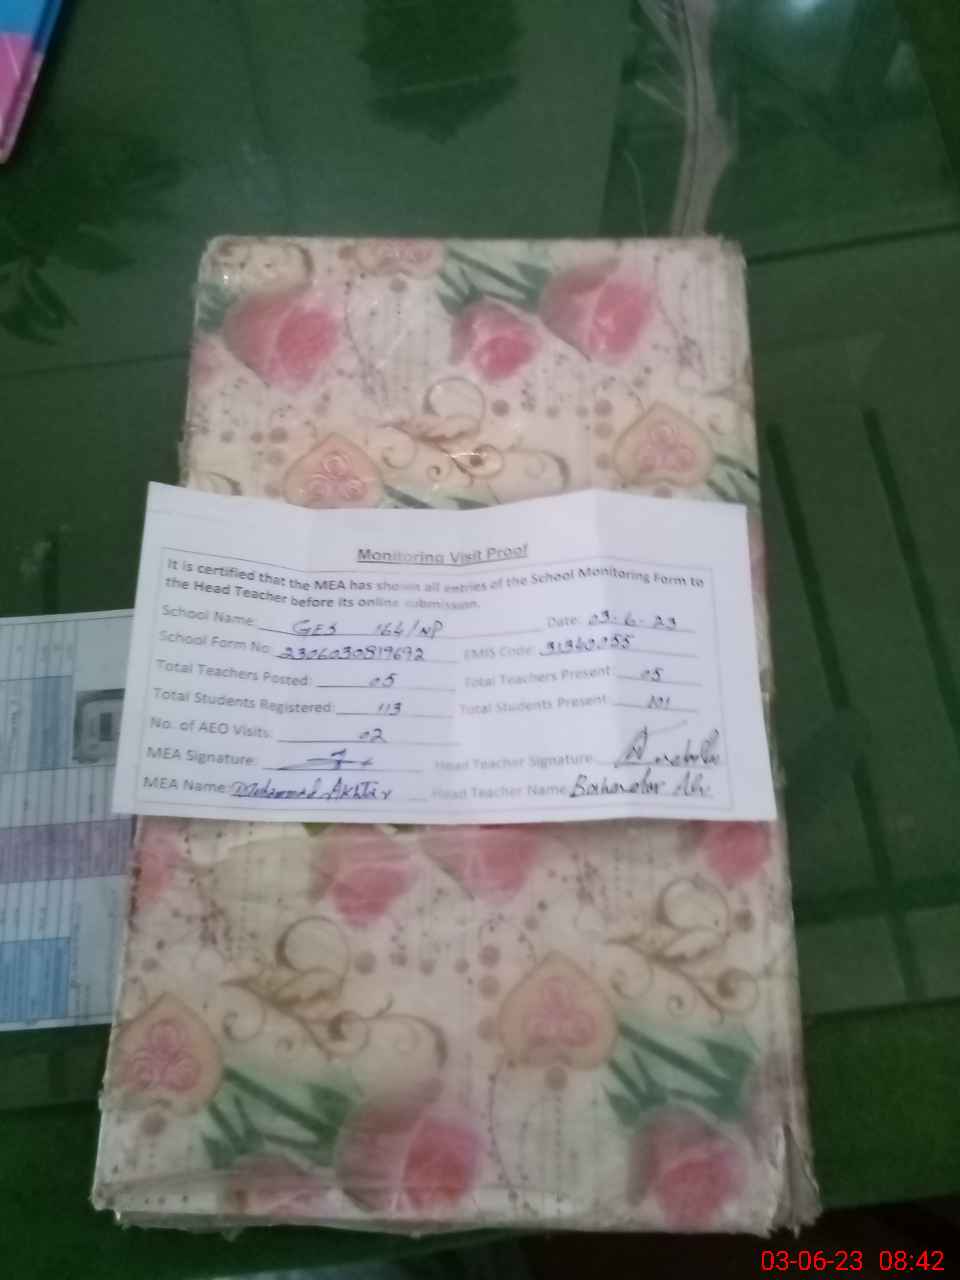 Monitoring Visit Proof
It is certified that the MEA has shown all entries of the School Monitoring Form to
the Head Teacher before its online submission.
School Name: GES 164/NP Date: 03-6-23
School Form No: 2306030819692 EMIS Code: 31340055
Total Teachers Posted: 05 Total Teachers Present: 05
Total Students Registered: 113 Total Students Present: 101
No. of AEO Visits: 02
MEA Signature: Head Teacher Signature:
MEA Name: Mohammad Akhtar Head Teacher Name
03-06-23 08:42